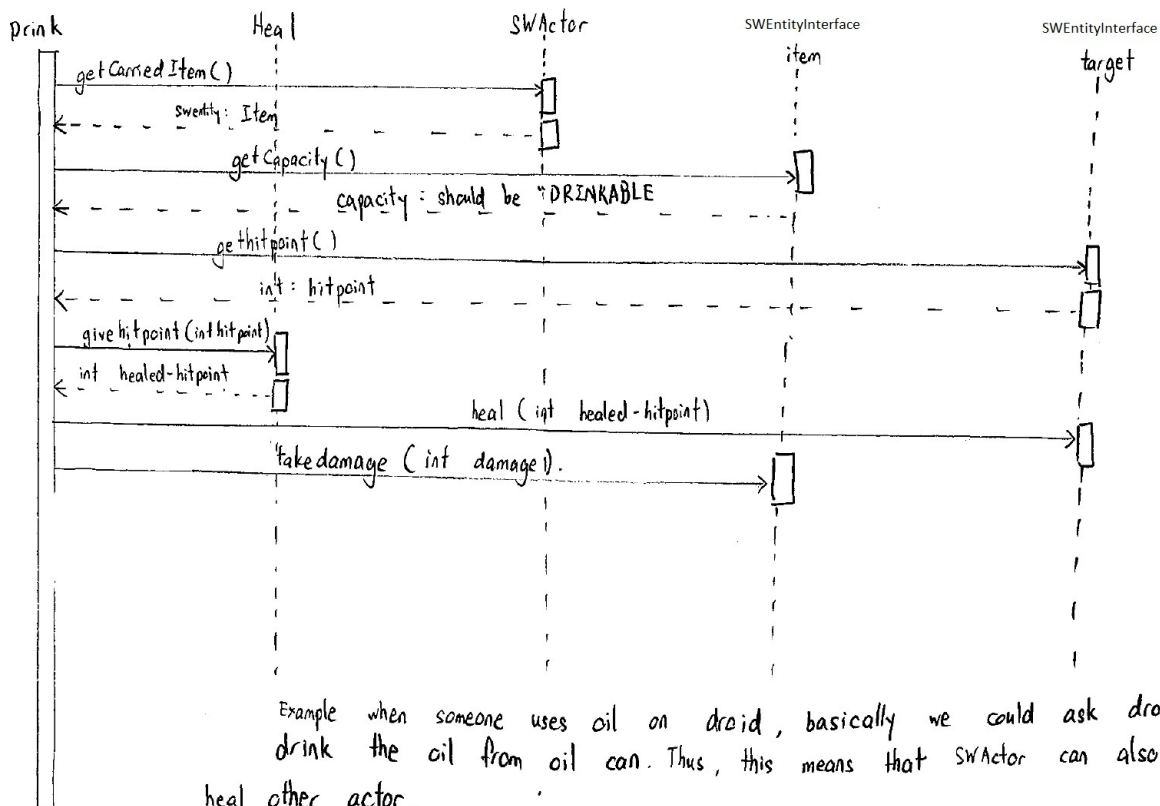 Drink
Heal
SWActor
SWEntityInterface
item
SWEntityInterface
target
getCarriedItem()
swentity: Item
getCapacity()
capacity : should be "DRINKABLE
gethitpoint()
int : hitpoint
givehitpoint(int hitpoint)
int healed-hitpoint
heal (int healed-hitpoint)
takedamage (int damage1).
Example when someone uses oil on droid, basically we could ask dro
drink the oil from oil can. Thus, this means that SWActor can also
heal other actor